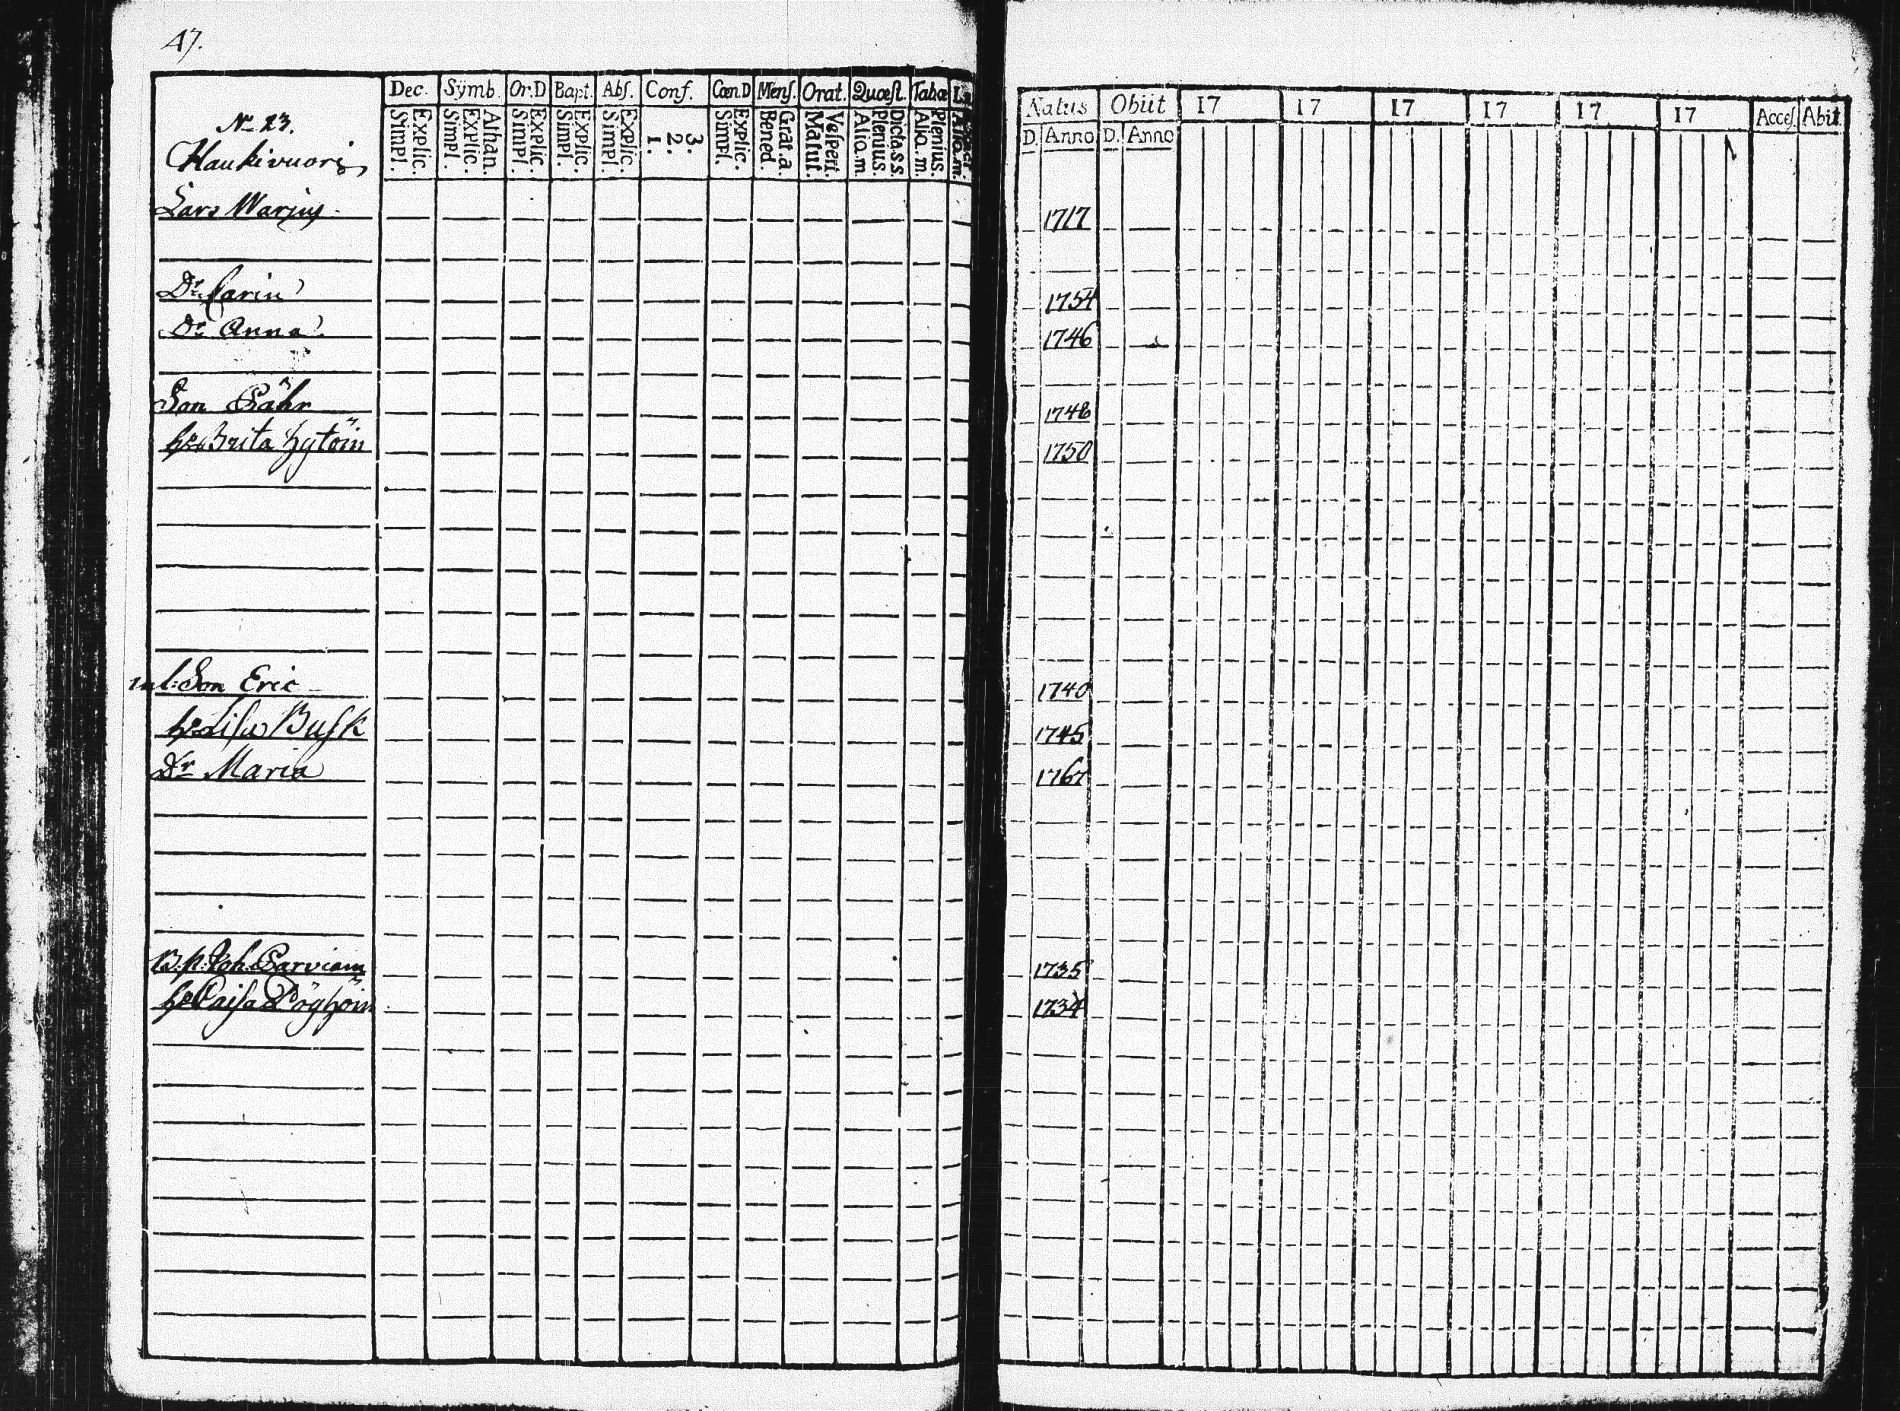 47.
Dec. Symb. Or.D Bapt. Abs. Conf. Cœn.D Mens. Orat. Quæst. Tabæ
Natus Obiit 17 17 17 17 17 17 Acces. Abit
Explic. Simpl. Athan. Explic. Simpl. Explic. Simpl. Explic. Simpl. Explic. Simpl. 3. 2. 1. Explic. Simpl. Grat.a. Bened. Vespert. Matut. Dicta.s.s. Plenius. Alio.m. Plenius. Alio.m. Alio.m.
D. Anno D. Anno
No 23.
Haukivuori
Lars Warjus 1717
Dr. Carin 1754
Dr Anna 1746
Son Påhr 1748
hr. Brita Hytöin 1750
inl: Son Eric 1740
hr. Lisa Busk 1745
Dr Maria 1767
B.p. Joh. Parviain 1735
hr Caisa Pöyhöin 1734